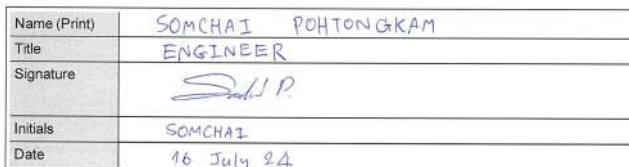 Name (Print) SOMCHAI POHTONGKAM
Title ENGINEER
Signature
Initials SOMCHAI
Date 16 July 24